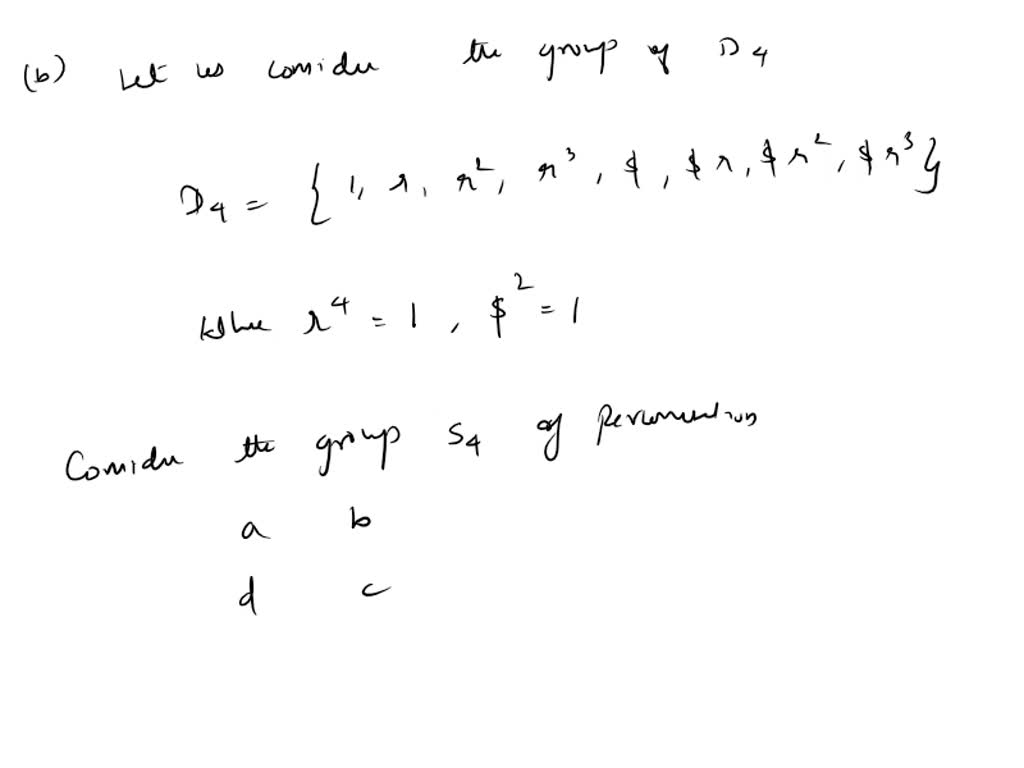 (b) Let us consider the group of D4
D4 = { 1, r, r², r³, $, $r, $r², $r³}
Where r⁴ = 1, $² = 1
Consider the group S4 of Permutations
a b
d c